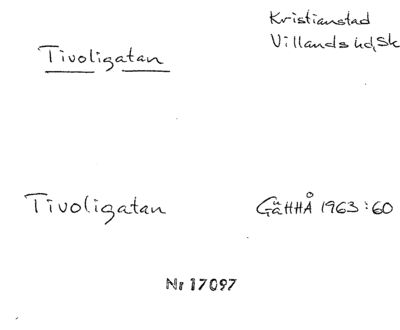 Kristianstad
Tivoligatan
Villands hd, Sk
Tivoligatan
GäHHÅ 1963:60
Nr 17097